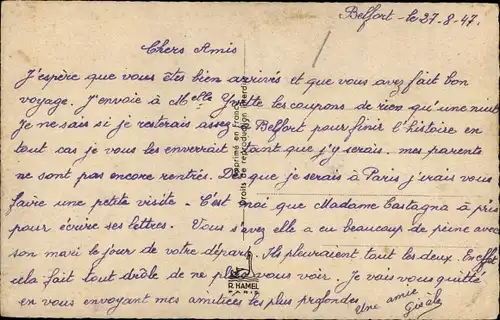 Belfort - le 27-8-47.
Chers Amis
J'espère que vous êtes bien arrivés et que vous avez fait bon
voyage. J'envoie à Melle Yvette les coupons de rien qu'une nuit
Je ne sais si je resterais assez Belfort pour finir l'histoire en
tout cas je vous les enverrait tant que j'y serais. mes parents
ne sont pas encore rentrés. Dès que je serais à Paris j'irais vous
faire une petite visite - C'est moi que Madame Castagna à pris
pour écrire ses lettres. Vous savez elle a eu beaucoup de peine avec
son mari le jour de votre départ. Ils pleuraient tout les deux. En effet
cela fait tout drôle de ne plus vous voir. Je vais vous quitté
en vous envoyant mes amitiées les plus profondes
Une amie
Gisèle
Imprimé en France
Droits de reproduction interdits
R. HAMEL
PARIS